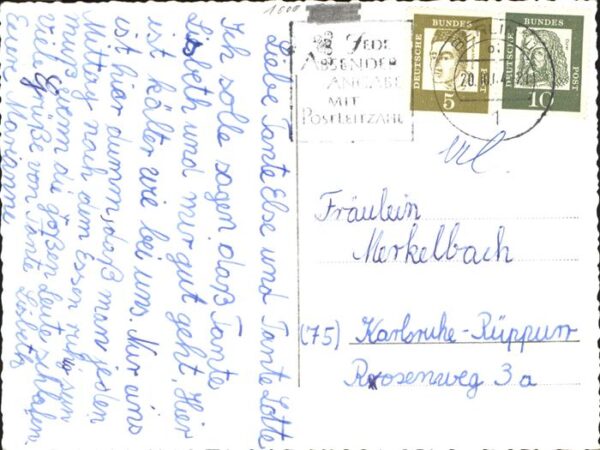 Liebe Tante Else und Tante Lotte
Ich solle sagen daß Tante
Lisbeth und mir gut geht. Hier
ist kälter wie bei uns. Nur eins
ist hier dumm, daß man jeden
Mittag nach dem Essen ruhig sein
muß wenn die großen Leute schlafen.
Viele Grüße von Tante Lisbeth
Eure Marianne
1000
JEDE
ABSENDER
ANGABE
MIT
POSTLEITZAHL
BERLIN
20.10.
1
DEUTSCHE BUNDESPOST
5
DEUTSCHE BUNDESPOST
10
Fräulein
Merkelbach
(75) Karlsruhe-Rüppurr
Rosenweg 3a